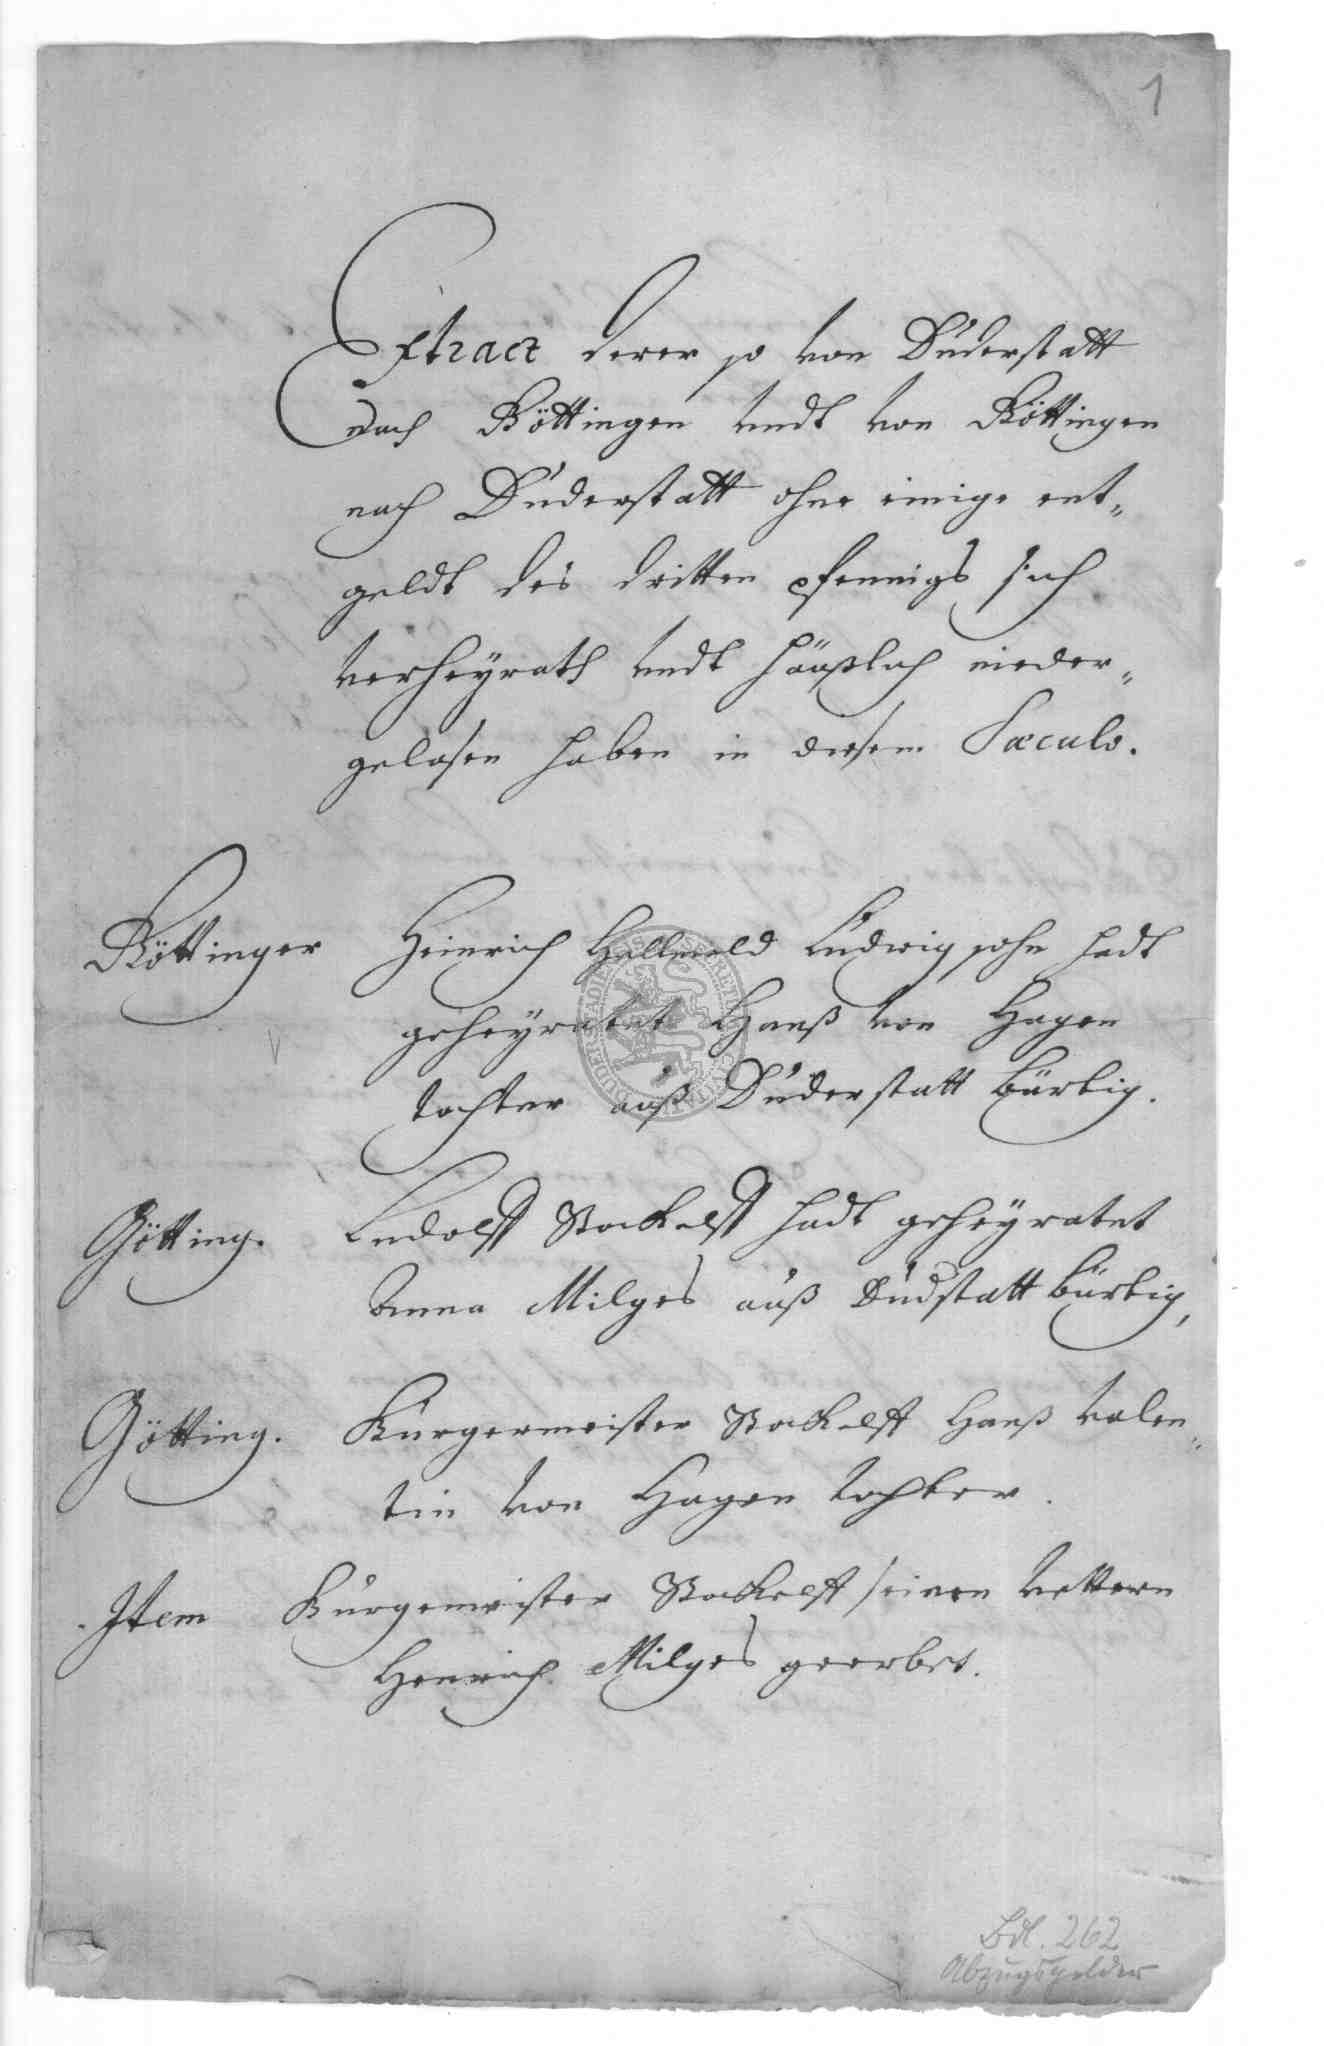 1
Extract derer so von Duderstatt
nach Göttingen undt von Göttingen
nach Duderstatt ohne einige ent„
geldt des dritten pfennigs sich
verheyrath undt häußlich nieder„
gelasen haben in diesem Sæculo.
Göttinger Heinrich Helmold Ludwig sohn hadt
geheyratet Hanß von Hagen
tochter auß Duderstatt bürtig.
Götting. Ludolff Stockelff hadt geheyratet
Anna Milges auß Dudstatt bürtig,
Götting. Burgermeister Stockelff Hanß Valen„
tin von Hagen tochter.
Item Burgemeister Stockelff seinen Vettern
Henrich Milges geerbet.
Bdl. 262
Abzugsgelder